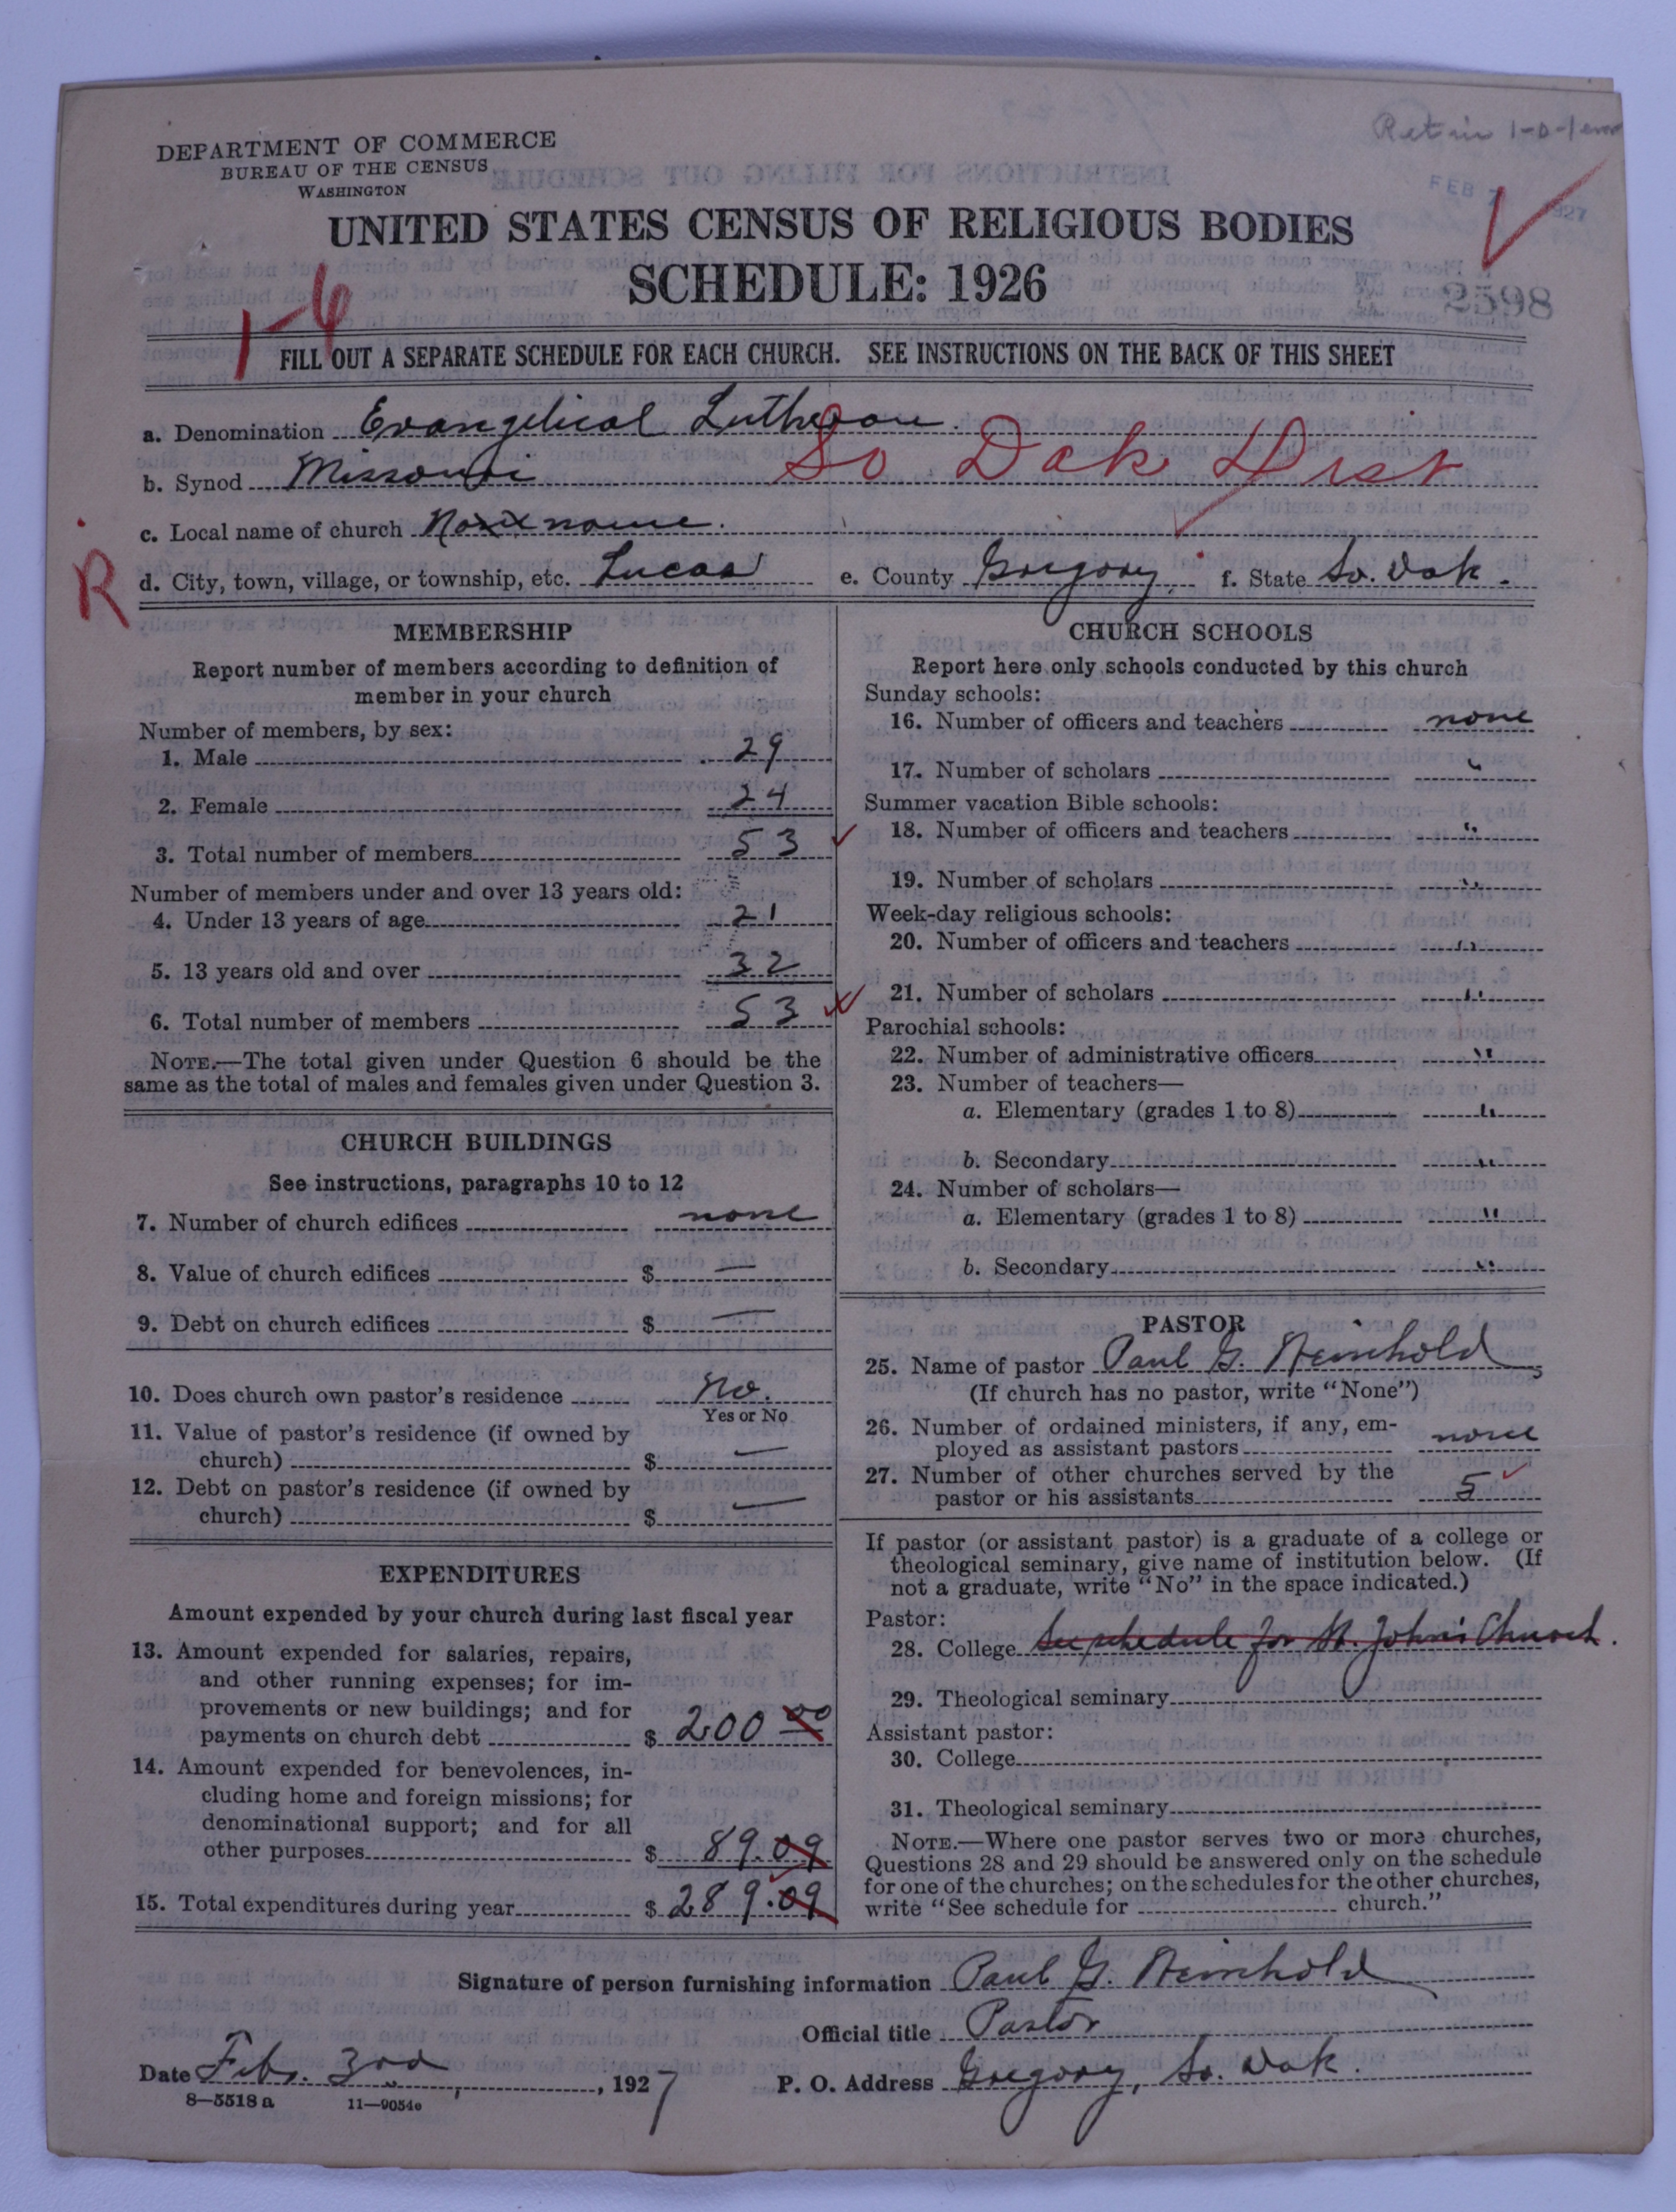 Retain 1-0-1
DEPARTMENT OF COMMERCE
BUREAU OF THE CENSUS
WASHINGTON
FEB 7 1927
UNITED STATES CENSUS OF RELIGIOUS BODIES
SCHEDULE: 1926
2598
1-6
FILL OUT A SEPARATE SCHEDULE FOR EACH CHURCH. SEE INSTRUCTIONS ON THE BACK OF THIS SHEET
a. Denomination Evangelical Lutheran
b. Synod Missouri So Dak Dist
c. Local name of church no name.
R
d. City, town, village, or township, etc. Lucas e. County Gregory f. State So. Dak.
MEMBERSHIP
Report number of members according to definition of
member in your church
Number of members, by sex:
1. Male 29
2. Female 24
3. Total number of members 53
Number of members under and over 13 years old:
4. Under 13 years of age 21
5. 13 years old and over 32
6. Total number of members 53
NOTE.—The total given under Question 6 should be the
same as the total of males and females given under Question 3.
CHURCH BUILDINGS
See instructions, paragraphs 10 to 12
7. Number of church edifices none
8. Value of church edifices $ —
9. Debt on church edifices $ —
10. Does church own pastor's residence No.
Yes or No
11. Value of pastor's residence (if owned by
church) $ —
12. Debt on pastor's residence (if owned by
church) $ —
EXPENDITURES
Amount expended by your church during last fiscal year
13. Amount expended for salaries, repairs,
and other running expenses; for im-
provements or new buildings; and for
payments on church debt $ 200 00
14. Amount expended for benevolences, in-
cluding home and foreign missions; for
denominational support; and for all
other purposes $ 89.09
15. Total expenditures during year $ 289.09
CHURCH SCHOOLS
Report here only schools conducted by this church
Sunday schools:
16. Number of officers and teachers none
17. Number of scholars "
Summer vacation Bible schools:
18. Number of officers and teachers "
19. Number of scholars "
Week-day religious schools:
20. Number of officers and teachers "
21. Number of scholars "
Parochial schools:
22. Number of administrative officers "
23. Number of teachers—
a. Elementary (grades 1 to 8) "
b. Secondary "
24. Number of scholars—
a. Elementary (grades 1 to 8) "
b. Secondary "
PASTOR
25. Name of pastor Paul G. Reinhold
(If church has no pastor, write "None")
26. Number of ordained ministers, if any, em-
ployed as assistant pastors none
27. Number of other churches served by the
pastor or his assistants 5
If pastor (or assistant pastor) is a graduate of a college or
theological seminary, give name of institution below. (If
not a graduate, write "No" in the space indicated.)
Pastor:
28. College See schedule for St. John's Church.
29. Theological seminary
Assistant pastor:
30. College
31. Theological seminary
NOTE.—Where one pastor serves two or more churches,
Questions 28 and 29 should be answered only on the schedule
for one of the churches; on the schedules for the other churches,
write "See schedule for church."
Signature of person furnishing information Paul G. Reinhold
Official title Pastor
Date Feb. 3rd, 1927
P. O. Address Gregory, So. Dak.
8—5518 a 11—9054c